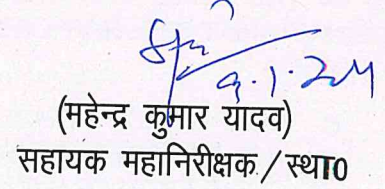 9.1.24
(महेन्द्र कुमार यादव)
सहायक महानिरीक्षक/स्था0